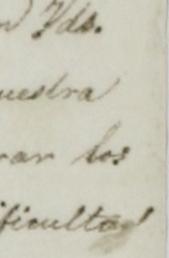 n Vds.
uestra
rar los
ificultad